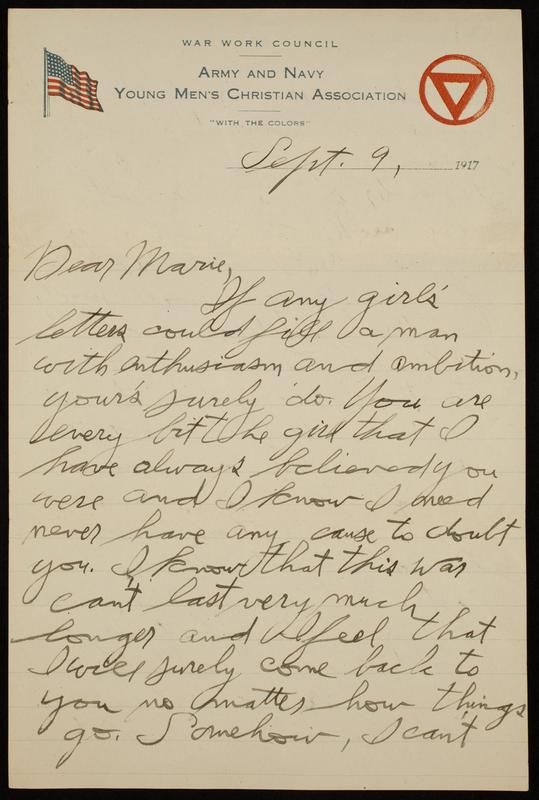 WAR WORK COUNCIL
ARMY AND NAVY
YOUNG MEN'S CHRISTIAN ASSOCIATION
"WITH THE COLORS"
Sept. 9, 1917
Dear Marie,
If any girl's
letters could fill a man
with enthusiasm and ambition,
your's surely do. You are
every bit the girl that I
have always believed you
were and I know I need
never have any cause to doubt
you. I know that this war
can't last very much
longer and I feel that
I will surely come back to
you no matter how things
go. Somehow, I can't